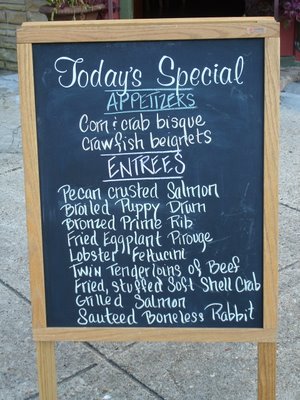 Today's Special
APPETIZERS
Corn & crab bisque
Crawfish beignets
ENTREES
Pecan crusted Salmon
Broiled Puppy Drum
Bronzed Prime Rib
Fried Eggplant Pirouge
Lobster Fettucini
Twin Tenderloins of Beef
Fried, stuffed Soft Shell Crab
Grilled Salmon
Sauteed Boneless Rabbit